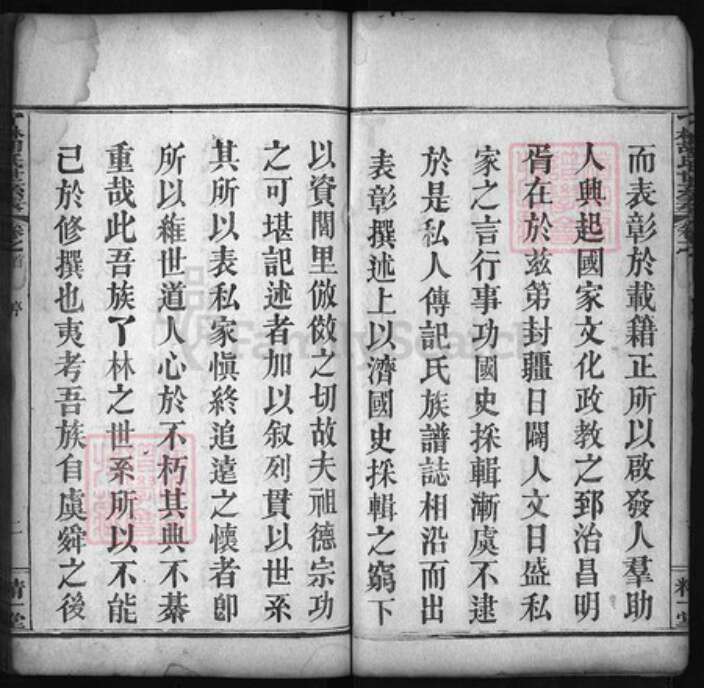 而表彰於載籍正所以啟發人羣助
人興起國家文化政教之郅治昌明
胥在於兹第封疆日闢人文日盛私
家之言行事功國史採輯漸虞不逮
於是私人傳記氏族譜誌相沿而出
表彰撰述上以濟國史採輯之窮下
以資閭里倣傚之切故夫祖德宗功
之可堪記述者加以叙列貫以世系
其所以表私家慎終追遠之懷者卽
所以維世道人心於不朽其典不綦
重哉此吾族了林之世系所以不能
已於修撰也夷考吾族自虞舜之後
精一堂
精一堂
FamilySearch